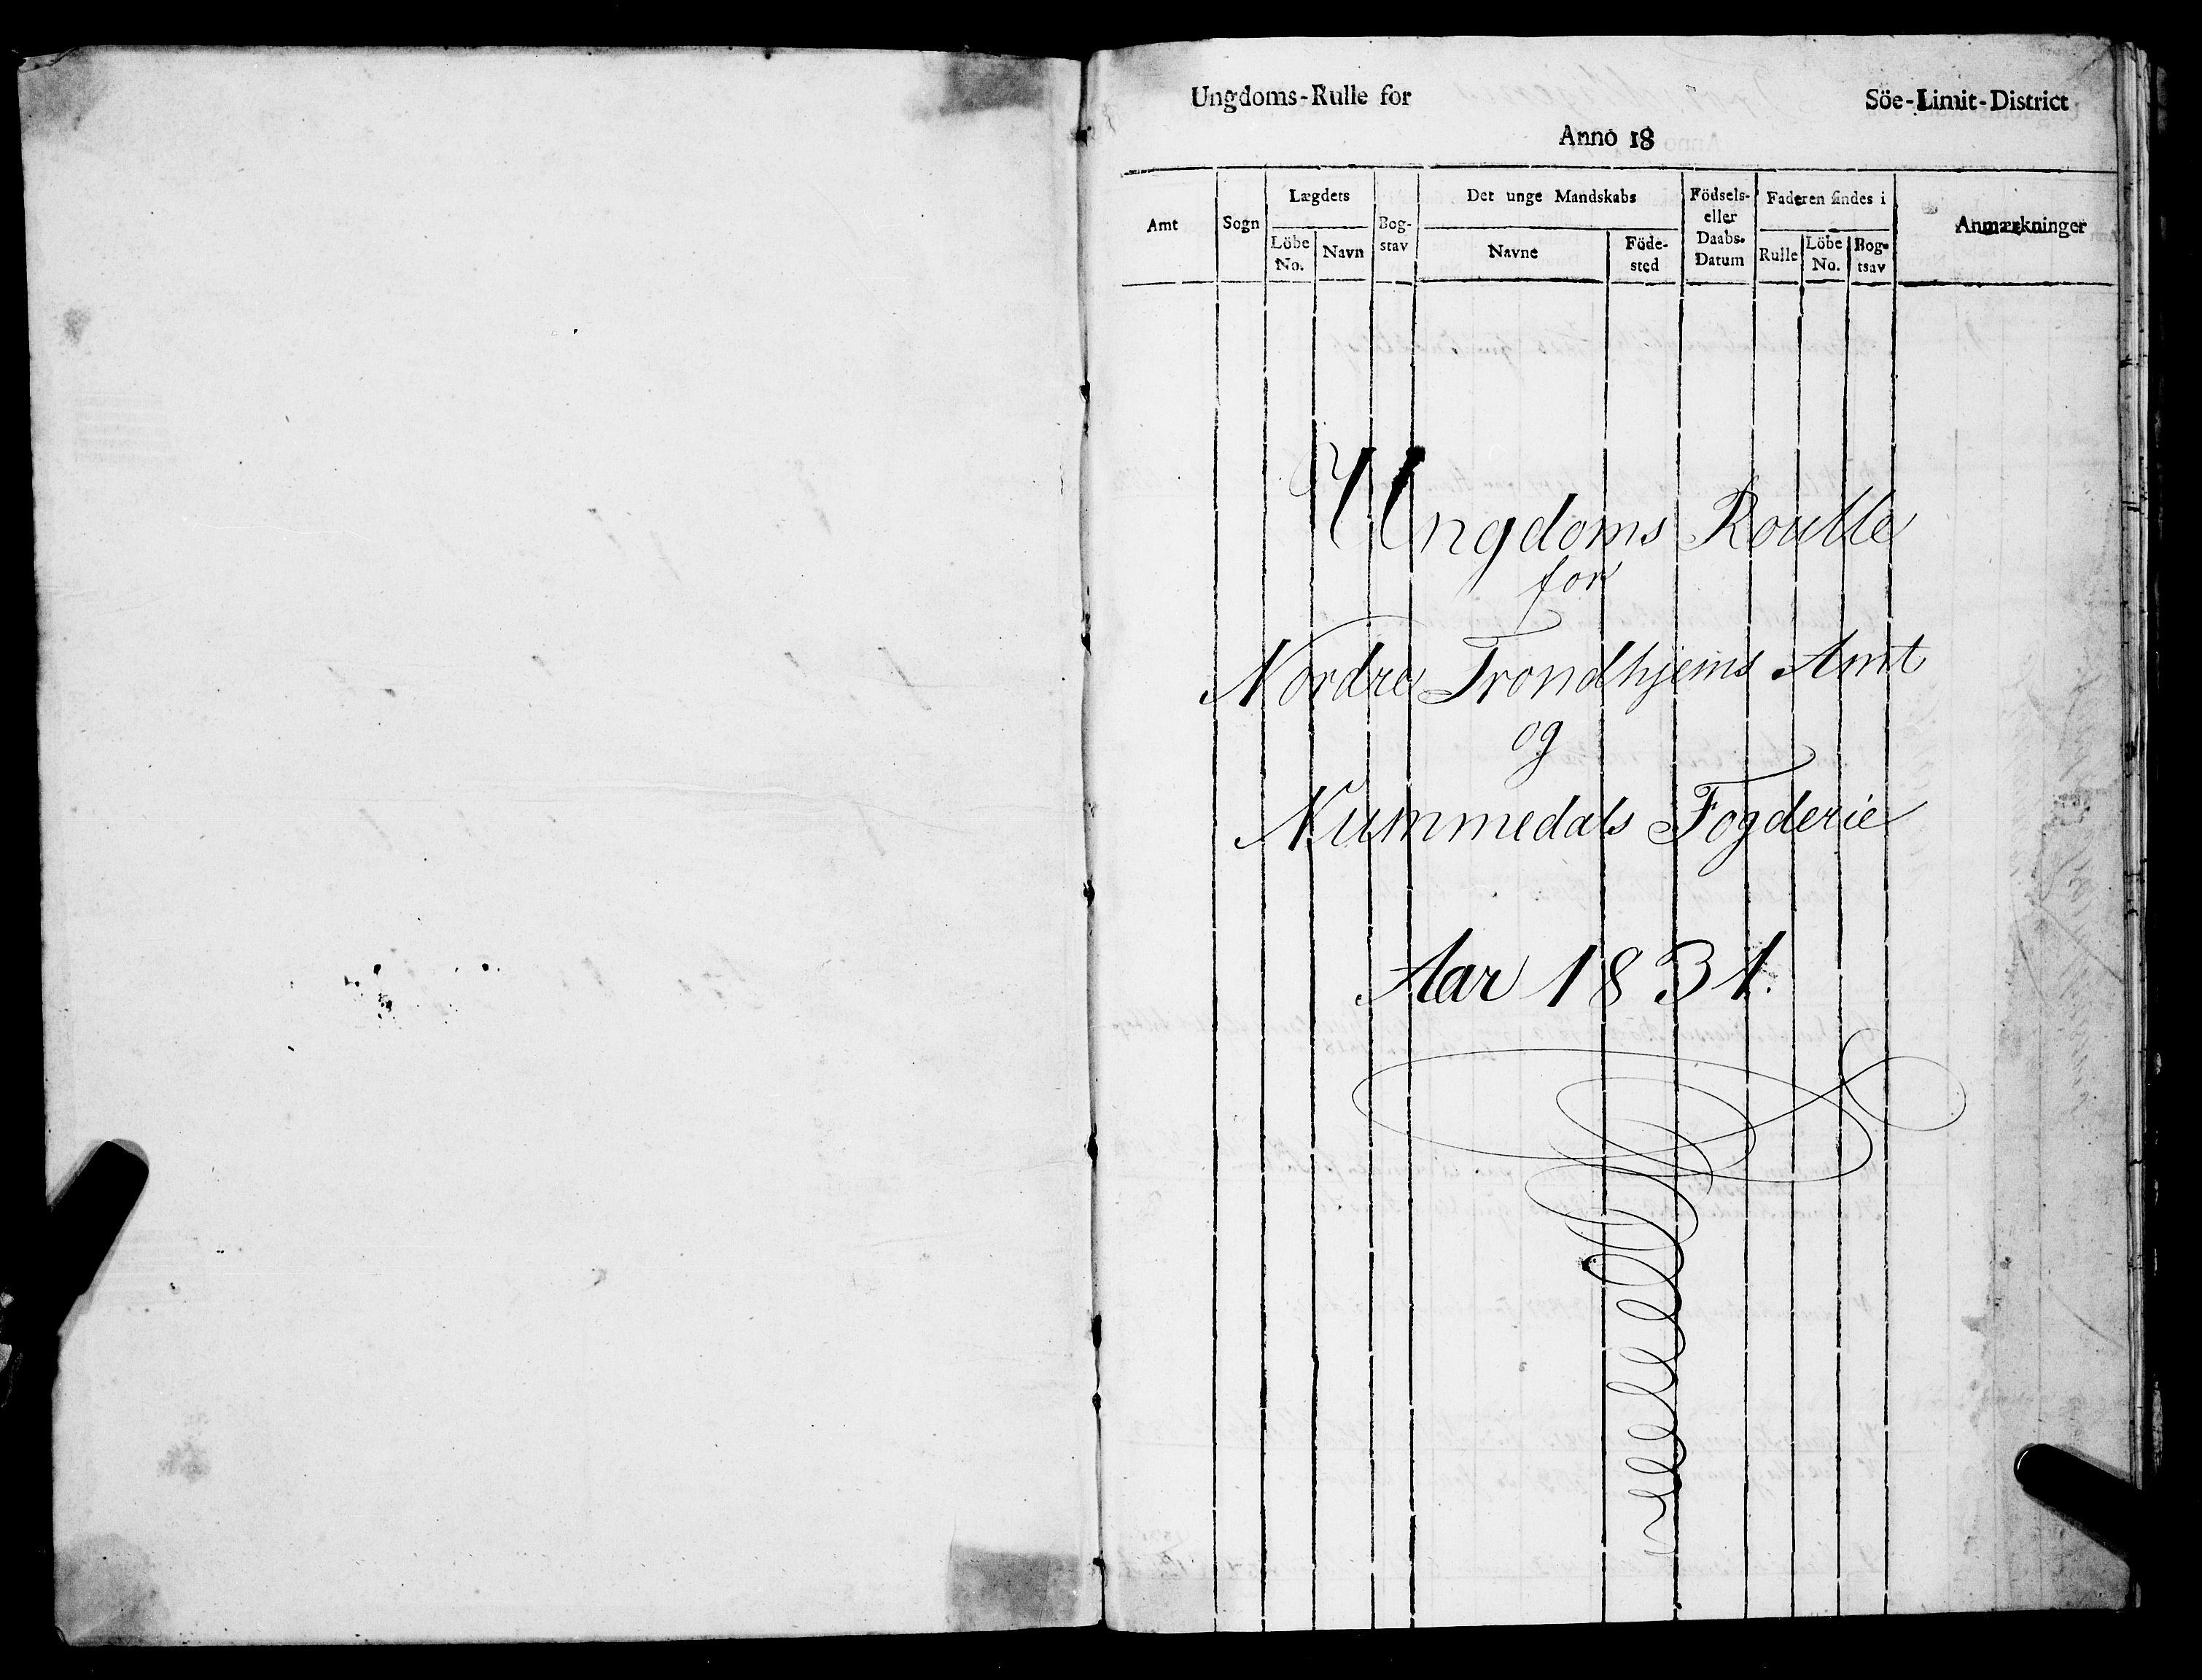 Ungdoms-Rulle for Söe-Limit-District
Anno 18
Amt
Sogn
Lægdets
Löbe No.
Navn
Bog-
stav
Det unge Mandskabs
Navne
Föde-
sted
Födsels-
eller
Daabs-
Datum
Faderen findes i
Rulle
Löbe No.
Bog-
tsav
Anmærkninger
Ungdoms Roulle
for
Nordre Trondhjems Amt
og
Nummedals Fogderie
Aar 1831.